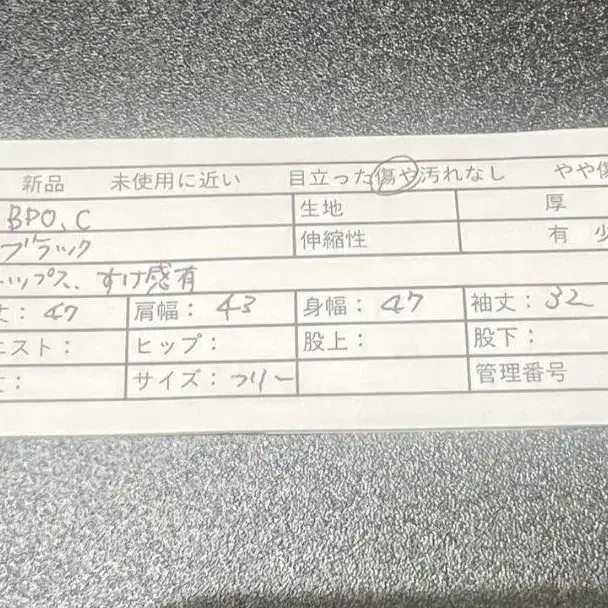 新品 未使用に近い 目立った傷や汚れなし やや傷
BPO、C 生地 厚
ブラック 伸縮性 有 少
ップス、すけ感有
丈：47 肩幅：43 身幅：47 袖丈：32
エスト： ヒップ： 股上： 股下：
サイズ：フリー 管理番号